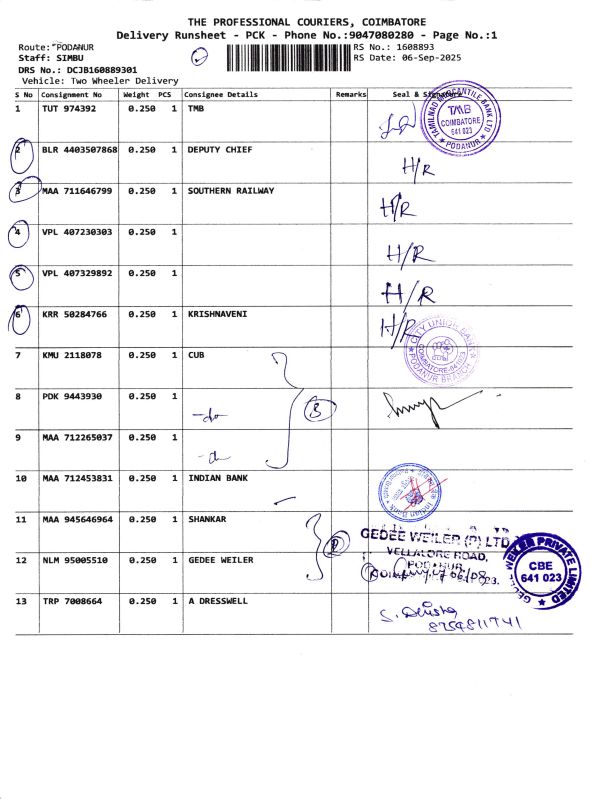 THE PROFESSIONAL COURIERS, COIMBATORE
Delivery Runsheet - PCK - Phone No.:9047080280 - Page No.:1
Route: PODANUR
RS No.: 1608893
Staff: SIMBU
RS Date: 06-Sep-2025
DRS No.: DCJB160889301
Vehicle: Two Wheeler Delivery
S No Consignment No Weight PCS Consignee Details Remarks Seal & Signature
1 TUT 974392 0.250 1 TMB
TAMILNAD MERCANTILE BANK LTD
TMB
COIMBATORE
641 023
PODANUR
2 BLR 4403507868 0.250 1 DEPUTY CHIEF
H/R
3 MAA 711646799 0.250 1 SOUTHERN RAILWAY
H/R
4 VPL 407230303 0.250 1
H/R
5 VPL 407329892 0.250 1
H/R
6 KRR 50284766 0.250 1 KRISHNAVENI
H/R
CITY UNION BANK
COIMBATORE-641023
PODANUR BRANCH
7 KMU 2118078 0.250 1 CUB
8 PDK 9443930 0.250 1
-do
3
9 MAA 712265037 0.250 1
10 MAA 712453831 0.250 1 INDIAN BANK
Indian Bank
11 MAA 945646964 0.250 1 SHANKAR
GEDEE WEILER (P) LTD
VELLALORE ROAD,
PODANUR
12 NLM 95005510 0.250 1 GEDEE WEILER
GEDEE WEILER PRIVATE LIMITED
CBE
641 023
13 TRP 7008664 0.250 1 A DRESSWELL
8754811741